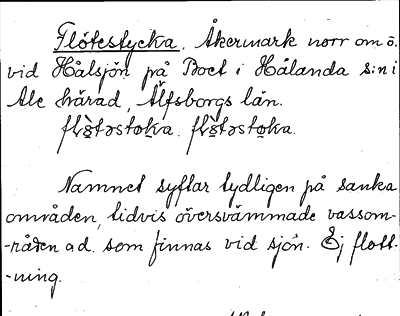 Flötestycka. Åkermark norr om ö.
vid Hålsjön på Boet i Hålanda s:n i
Ale härad, Älfsborgs län.
Namnet syftar tydligen på sanka
områden, tidvis översvämmade vassom-
-råden o.d. som finnas vid sjön. Ej flott-
-ning.